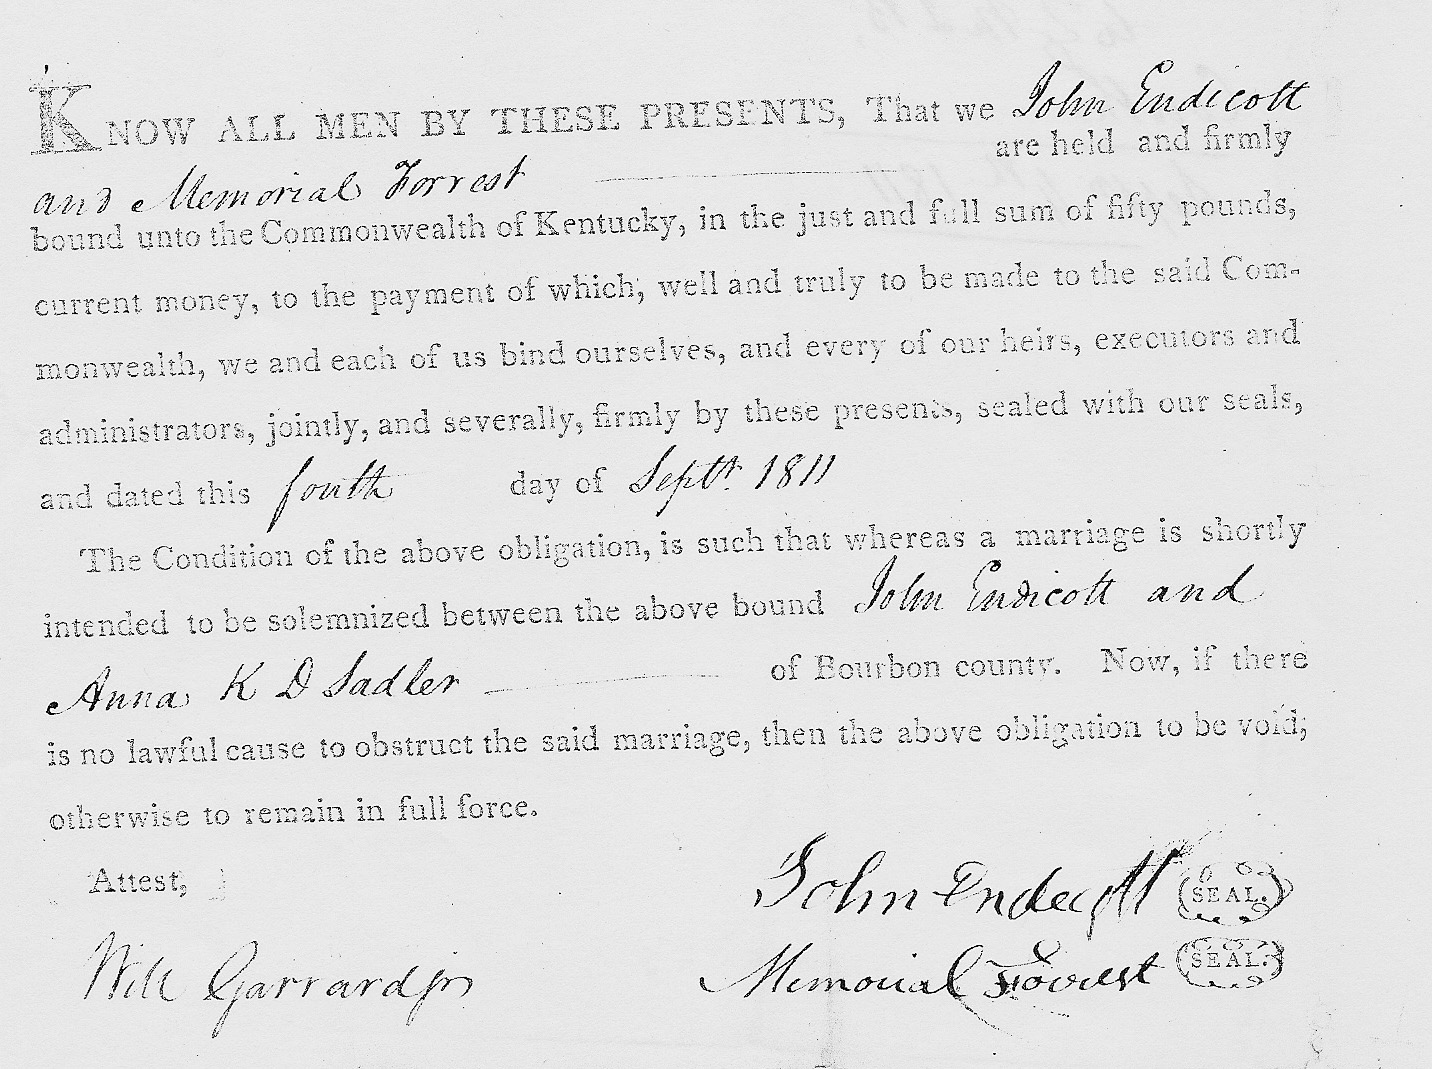 KNOW ALL MEN BY THESE PRESENTS, That we John Endicott
and Memorial Forrest are held and firmly
bound unto the Commonwealth of Kentucky, in the just and full sum of fifty pounds,
current money, to the payment of which, well and truly to be made to the said Com-
monwealth, we and each of us bind ourselves, and every of our heirs, executors and
administrators, jointly, and severally, firmly by these presents, sealed with our seals,
and dated this fouth day of Septr. 1811
The Condition of the above obligation, is such that whereas a marriage is shortly
intended to be solemnized between the above bound John Endicott and
Anna K D Sadler of Bourbon county. Now, if there
is no lawful cause to obstruct the said marriage, then the above obligation to be void;
otherwise to remain in full force.
Attest,
John Endecott SEAL.
Will Garrard jr
Memorial Forrest SEAL.